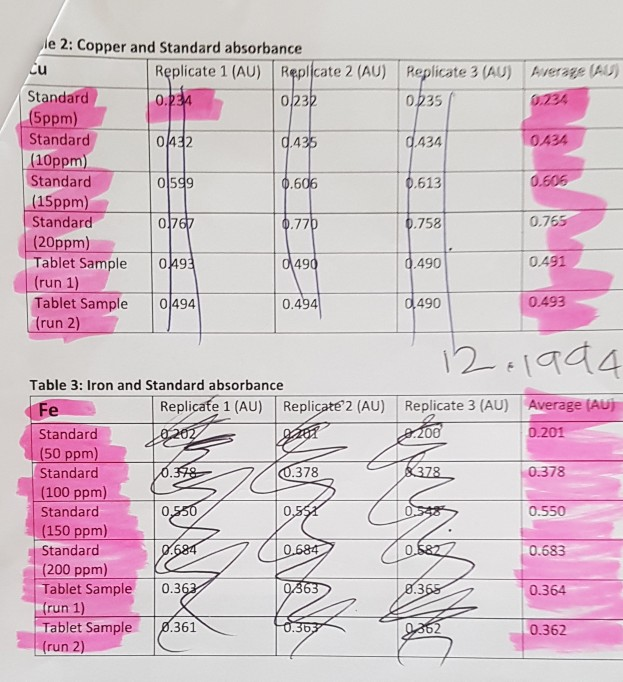 le 2: Copper and Standard absorbance
Cu Replicate 1 (AU) Replicate 2 (AU) Replicate 3 (AU) Average (AU)
Standard (5ppm) 0.234 0.232 0.235 0.234
Standard (10ppm) 0.432 0.435 0.434 0.434
Standard (15ppm) 0.599 0.606 0.613 0.606
Standard (20ppm) 0.767 0.770 0.758 0.765
Tablet Sample (run 1) 0.493 0.490 0.490 0.491
Tablet Sample (run 2) 0.494 0.494 0.490 0.493
12.1994
Table 3: Iron and Standard absorbance
Fe Replicate 1 (AU) Replicate 2 (AU) Replicate 3 (AU) Average (AU)
Standard (50 ppm) 0.202 0.201 0.200 0.201
Standard (100 ppm) 0.378 0.378 0.378 0.378
Standard (150 ppm) 0.550 0.551 0.548 0.550
Standard (200 ppm) 0.684 0.684 0.682 0.683
Tablet Sample (run 1) 0.363 0.363 0.365 0.364
Tablet Sample (run 2) 0.361 0.363 0.362 0.362